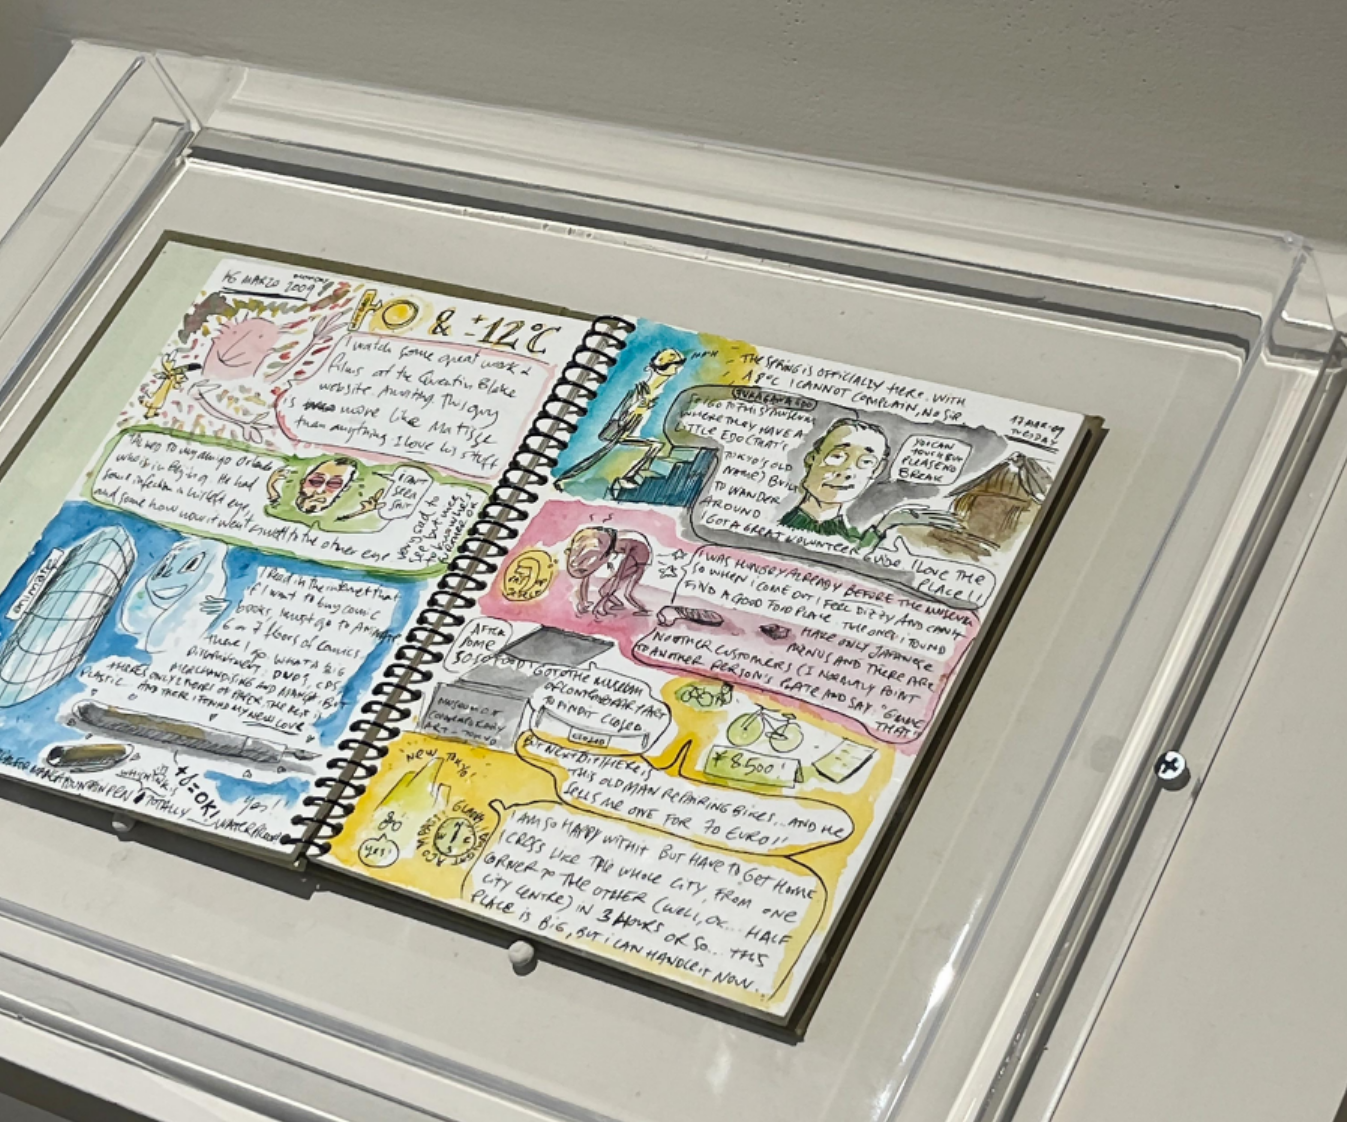 16 MARZO 2009
MONDAY
& ±12°C
I watch some great work &
films at the Quentin Blake
website. Amazing. This guy
is more like Matisse
than anything I love his stuff
who is in Beijing. He had
some infection in his left eye,
and some how now it went itself to the other eye
I CAN'T
SEEA
SHIT
very sad to
see, but
animate
I Read in the internet that
if I want to buy comic
books, I must go to ANIMATE
6 or 7 floors of comics.
There I go. WHAT A BIG
DISAPPOINTMENT. DVDS, CDS,
MERCHANDISING AND MANGA. BUT
THERE'S ONLY 2 METERS OF PAPER, THE REST IS
PLASTIC. AND THERE I FOUND MY NEW LOVE
MANGA FOUNTAIN PEN TOTALLY WATERPROOF!
WHICH INK IS
OK!
Yes!
MPH
THE SPRING IS OFFICIALLY HERE. WITH
18°C I CANNOT COMPLAIN, NO SIR.
17 MAR 09
TUESDAY
SO I GO TO THIS MUSEUM
WHERE THEY HAVE A
LITTLE EDO (THAT'S
TOKYO'S OLD
NAME) BUILT
TO WANDER
AROUND
I GOT A GREAT VOLUNTEER GUIDE
YOU CAN
TOUCH BUT
PLEASE NO
BREAK
I LOVE THE
PLACE!!
I WAS HUNGRY ALREADY BEFORE THE MUSEUM
SO WHEN I COME OUT I FEEL DIZZY AND CAN'T
FIND A GOOD FOOD PLACE. THE ONES I FOUND
HAVE ONLY JAPANESE
MENUS AND THERE ARE
NO OTHER CUSTOMERS (I NORMALLY POINT
TO ANOTHER PERSON'S PLATE AND SAY: "GIMME
THAT"
AFTER
SOME
SO SO FOOD
I GO TO THE MUSEUM
OF CONTEMPORARY ART
TO FIND IT CLOSED.
CLOSED
MUSEUM OF
CONTEMPORARY
ART - TOKYO
¥8500
BUT NEXT DOOR THERE IS
THIS OLD MAN REPAIRING BIKES... AND HE
SELLS ME ONE FOR 70 EURO!!
NEW TOY!
YES!
I AM SO HAPPY WITH IT BUT HAVE TO GET HOME
CROSS LIKE THE WHOLE CITY, FROM ONE
CORNER TO THE OTHER (WELL, OK... HALF
CITY CENTRE) IN 3 HOURS OR SO... THIS
PLACE IS BIG, BUT I CAN HANDLE IT NOW.